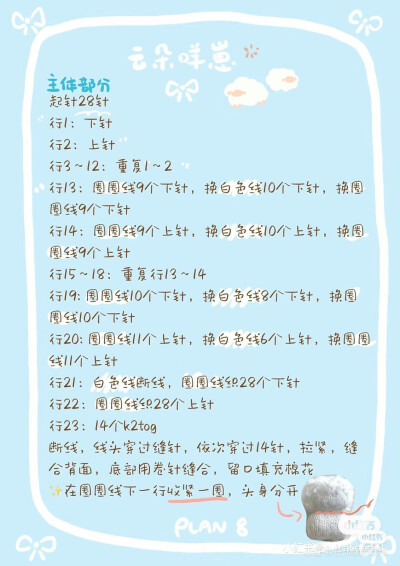 云朵咩崽
主体部分
起针28针
行1：下针
行2：上针
行3～12：重复1～2
行13：圈圈线9个下针，换白色线10个下针，换圈
圈线9个下针
行14：圈圈线9个上针，换白色线10个上针，换圈
圈线9个上针
行15～18：重复行13～14
行19：圈圈线10个下针，换白色线8个下针，换圈
圈线10个下针
行20：圈圈线11个上针，换白色线6个上针，换圈圈
线11个上针
行21：白色线断线，圈圈线织28个下针
行22：圈圈线织28个上针
行23：14个k2tog
断线，线头穿过缝针，依次穿过14针，拉紧，缝
合背面，底部用卷针缝合，留口填充棉花
✨在圈圈线下一行收紧一圈，头身分开
PLAN 8
小红书